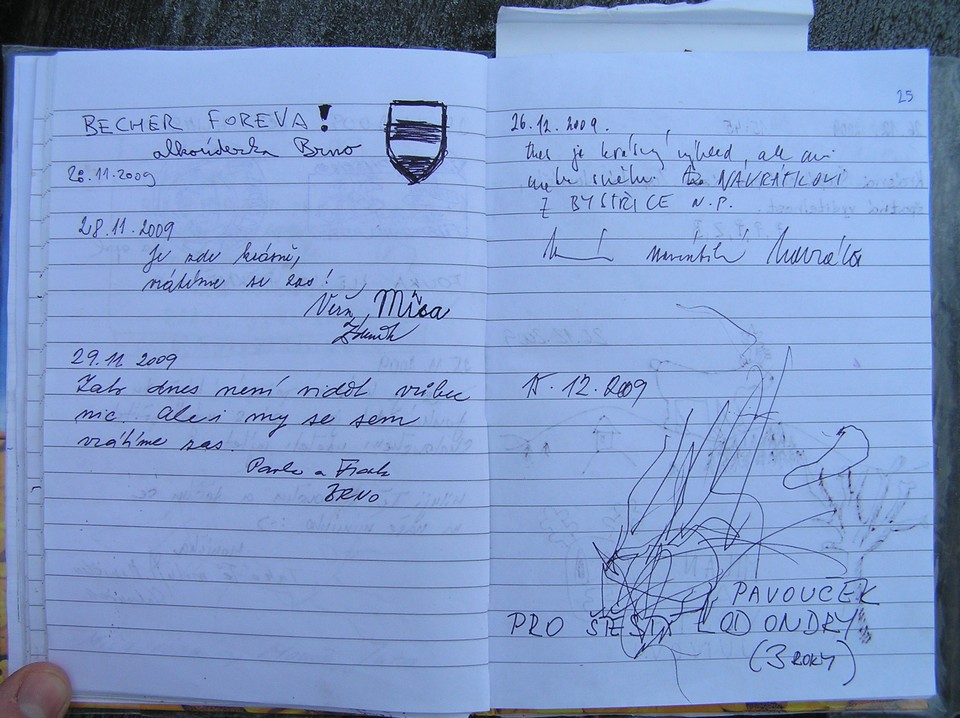 BECHER FOREVA!
alkoúderka Brno
28.11.2009
28.11.2009
Je zde krásně,
vrátíme se zas!
Věra, Míca
Zdeněk
29.11 2009
Zato dnes není vidět vůbec
nic. Ale i my se sem
vrátíme zas.
Pavla a
BRNO
25
26.12.2009.
dnes je krásný výhled, ale ani
sněhu. NAVRÁTILOVI
Z BYSTŘICE N.P.
15.12.2009
PAVOUČEK
PRO ŠTĚSTÍ OD ONDRY
(3 ROKY)